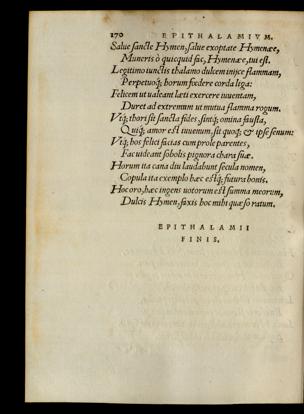 170 EPITHALAMIVM.
Salue sancte Hymen, salue exoptate Hymenæe,
Muneris ò quicquid sic, Hymenæe, tui est.
Legitimo iunctis thalamo dulcem inijce flammam,
Perpetuoq; horum fœdere corda liga:
Felicem ut ualeant læti exercere iuuentam,
Duret ad extremum ut mutua flamma rogum.
Vtq; thori sit sancta fides, sintq; omina fausta,
Quiq; amor est iuuenum, sit quoq; & ipse senum:
Vtq; hos felici facias cum prole parentes,
Fac uideant sobolis pignora chara suæ.
Horum ita cana diu laudabunt secula nomen,
Copula ita exemplo hæc estq; futura bonis.
Hoc oro, hæc ingens uotorum est summa meorum,
Dulcis Hymen, faxis hoc mihi quæso ratum.
EPITHALAMII
FINIS.